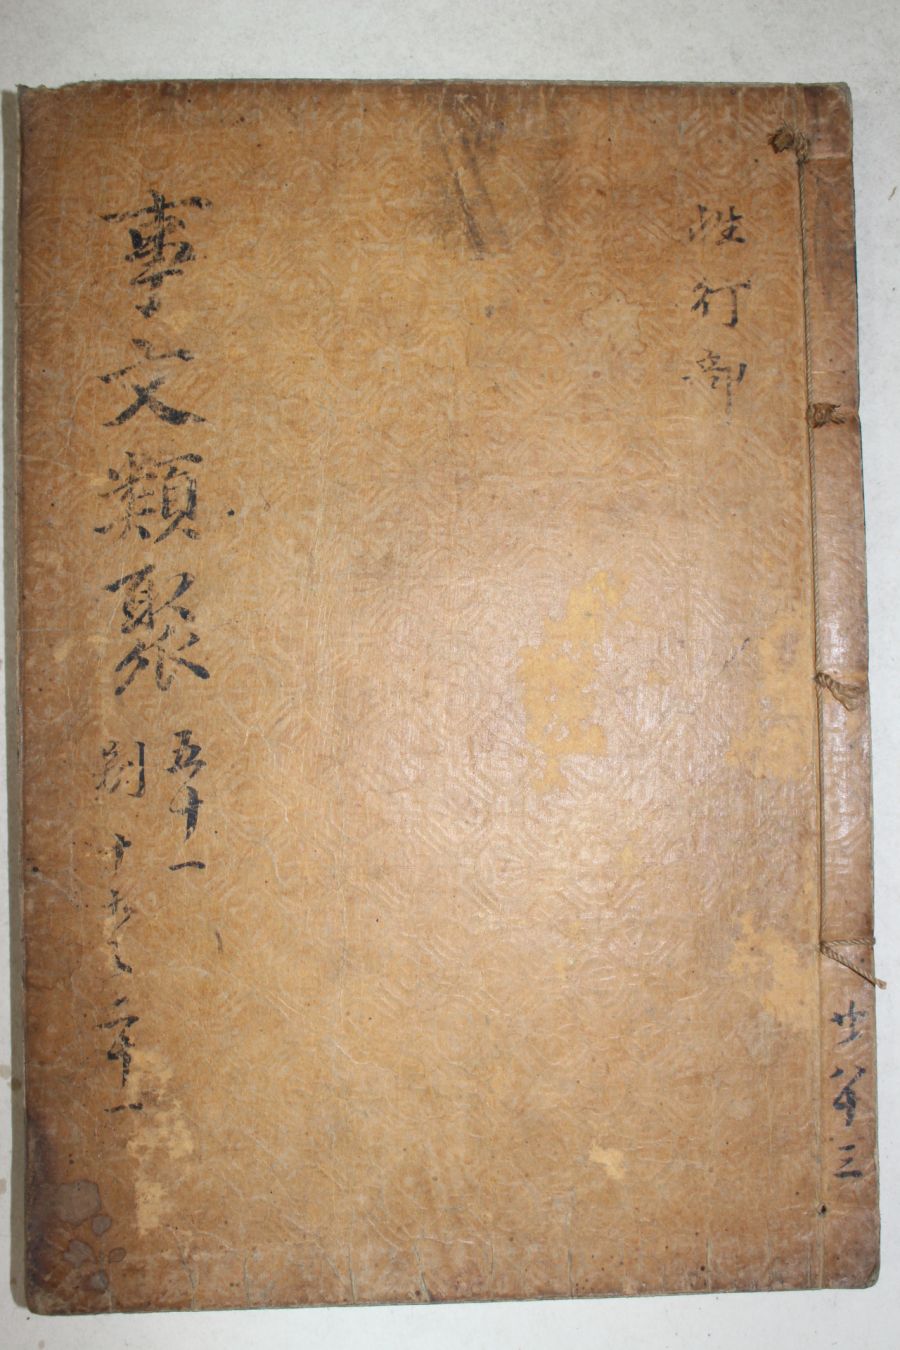 性行部
事文類聚
五十一
別 十九之二十一
共八十三